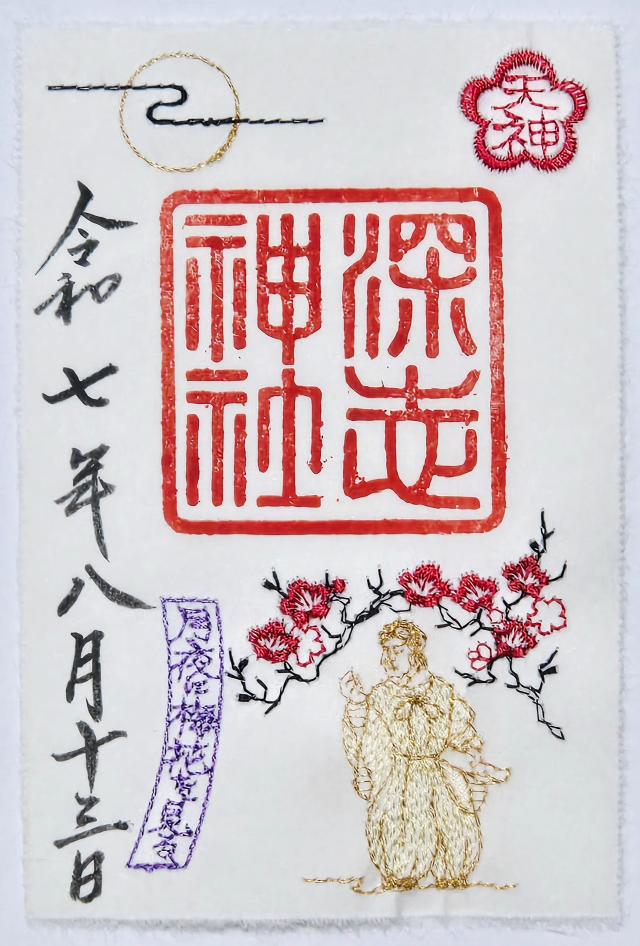 天神
深志
神社
月夜に梅花を見る
令和七年八月十三日